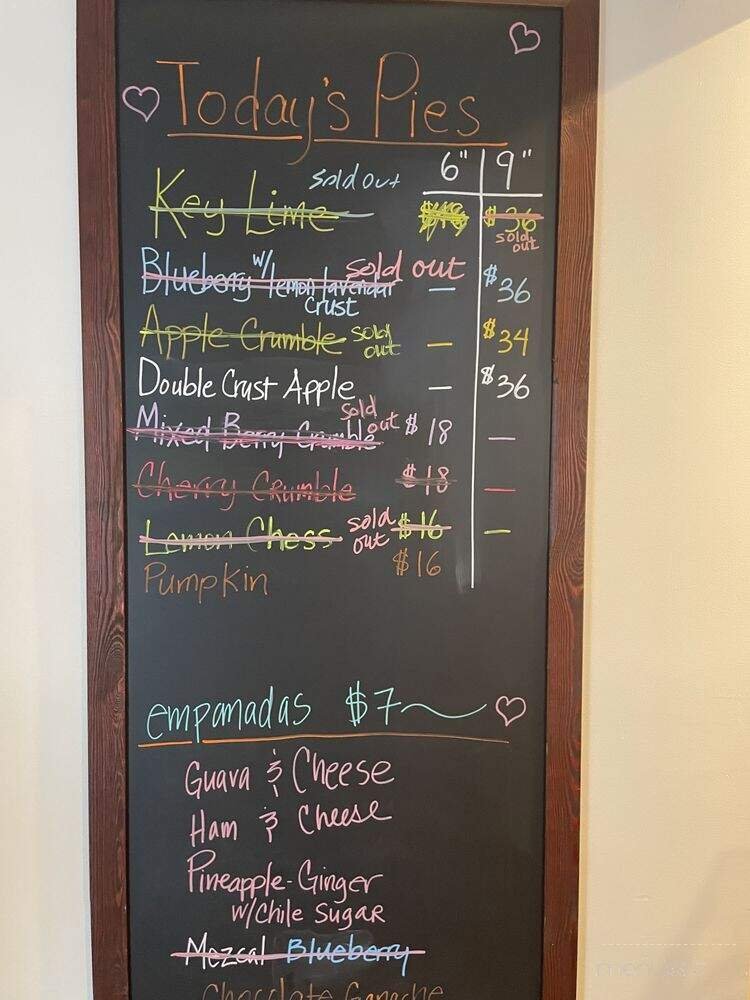 Today's Pies
6" 9"
Key Lime sold out $18 $36 sold out
Blueberry w/ lemon lavendar Crust sold out — $36
Apple Crumble sold out — $34
Double Crust Apple — $36
Mixed Berry Crumble sold out $18 —
Cherry Crumble $18 —
Lemon Chess sold out $16 —
Pumpkin $16
empanadas $7
Guava & Cheese
Ham & Cheese
Pineapple-Ginger
w/Chile Sugar
Mezcal Blueberry
Chocolate Ganache